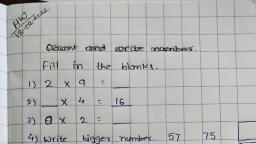 H/W
18-02-2022
Count and write numbers.
Fill in the blanks.
1) 2 x 9 = __
2) __ x 4 = 16
3) 0 x 2 = __
4) Write bigger number 57 75